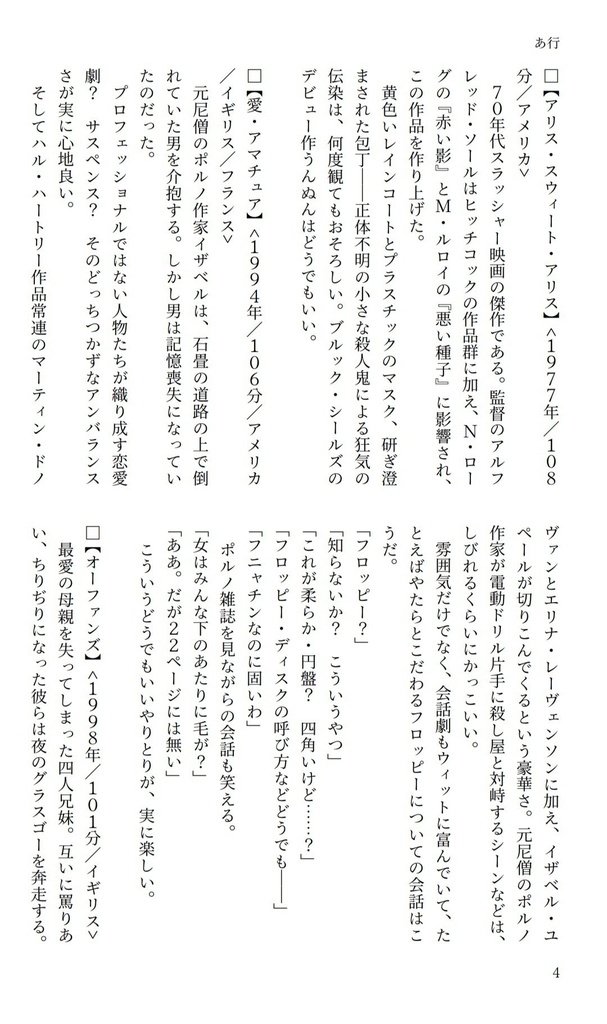 あ行
□【アリス・スウィート・アリス】<1977年/108
分/アメリカ>
70年代スラッシャー映画の傑作である。監督のアルフ
レッド・ソールはヒッチコックの作品群に加え、N・ロー
グの『赤い影』とM・ルロイの『悪い種子』に影響され、
この作品を作り上げた。
黄色いレインコートとプラスチックのマスク、研ぎ澄
まされた包丁――正体不明の小さな殺人鬼による狂気の
伝染は、何度観てもおそろしい。ブルック・シールズの
デビュー作うんぬんはどうでもいい。
□【愛・アマチュア】<1994年/106分/アメリカ
/イギリス/フランス>
元尼僧のポルノ作家イザベルは、石畳の道路の上で倒
れていた男を介抱する。しかし男は記憶喪失になってい
たのだった。
プロフェッショナルではない人物たちが織り成す恋愛
劇? サスペンス? そのどっちつかずなアンバランス
さが実に心地良い。
そしてハル・ハートリー作品常連のマーティン・ドノ
ヴァンとエリナ・レーヴェンソンに加え、イザベル・ユ
ペールが切りこんでくるという豪華さ。元尼僧のポルノ
作家が電動ドリル片手に殺し屋と対峙するシーンなどは、
しびれるくらいにかっこいい。
雰囲気だけでなく、会話劇もウィットに富んでいて、た
とえばやたらとこだわるフロッピーについての会話はこ
うだ。
「フロッピー?」
「知らないか? こういうやつ」
「これが柔らか・円盤? 四角いけど……?」
「フロッピー・ディスクの呼び方などどうでも――」
「フニャチンなのに固いわ」
ポルノ雑誌を見ながらの会話も笑える。
「女はみんな下のあたりに毛が?」
「ああ。だが22ページには無い」
こういうどうでもいいやりとりが、実に楽しい。
□【オーファンズ】<1998年/101分/イギリス>
最愛の母親を失ってしまった四人兄妹。互いに罵りあ
い、ちりぢりになった彼らは夜のグラスゴーを奔走する。
4